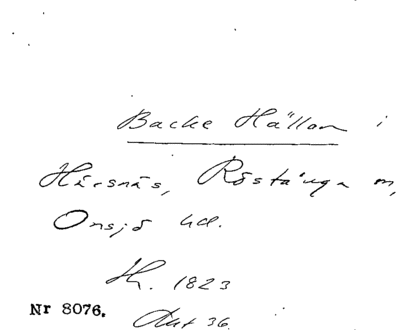 Backe Hällan i
Härsnäs, Röstånga sn,
Onsjö hd.
H. 1823
Nr 8076.
Akt 36.